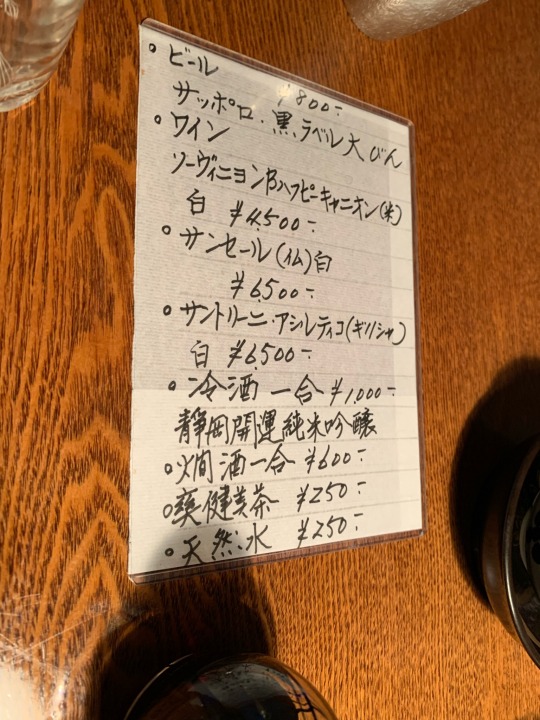 ・ビール
サッポロ・黒ラベル大びん ¥800-
・ワイン
ソーヴィニヨンBハッピーキャニオン(米)
白 ¥4500-
・サンセール(仏)白
¥6500-
・サントリーニ・アシルティコ(ギリシャ)
白 ¥6500-
・冷酒 一合 ¥1,000-
静岡開運純米吟醸
・燗酒一合 ¥600-
・爽健美茶 ¥250-
・天然水 ¥250-